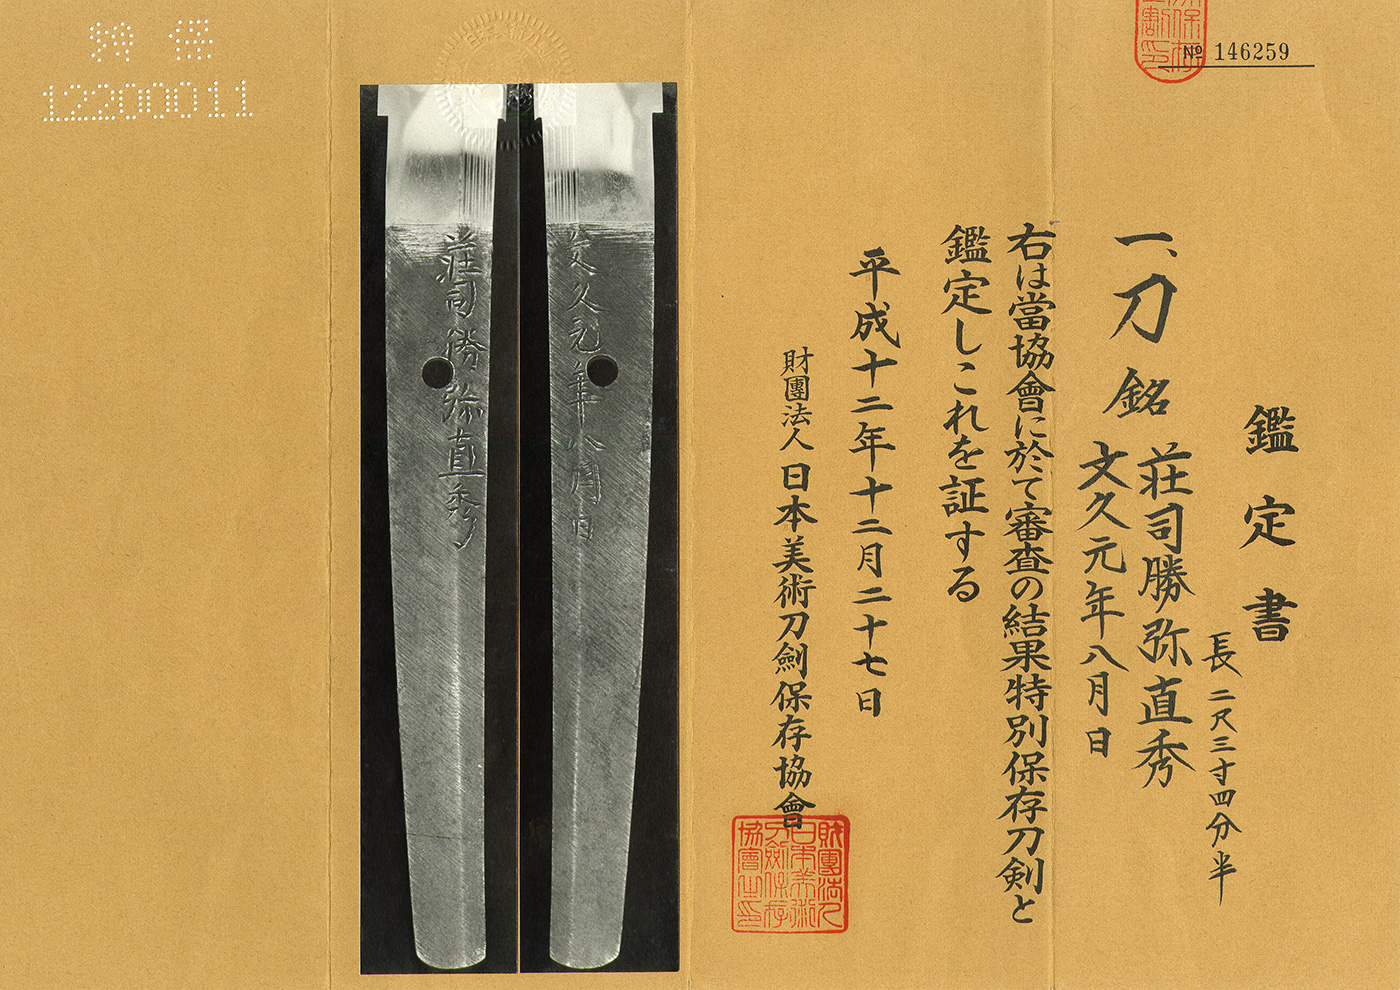 № 146259
鑑定書
一、刀 銘 荘司勝弥直秀
文久元年八月日
長 二尺三寸四分半
右は當協會に於て審査の結果特別保存刀剣と
鑑定しこれを証する
平成十二年十二月二十七日
財團法人 日本美術刀劍保存協會
財團法人
日本美術
刀劍保存
協會之印
荘司勝弥直秀
文久元年八月日
特保
12200011